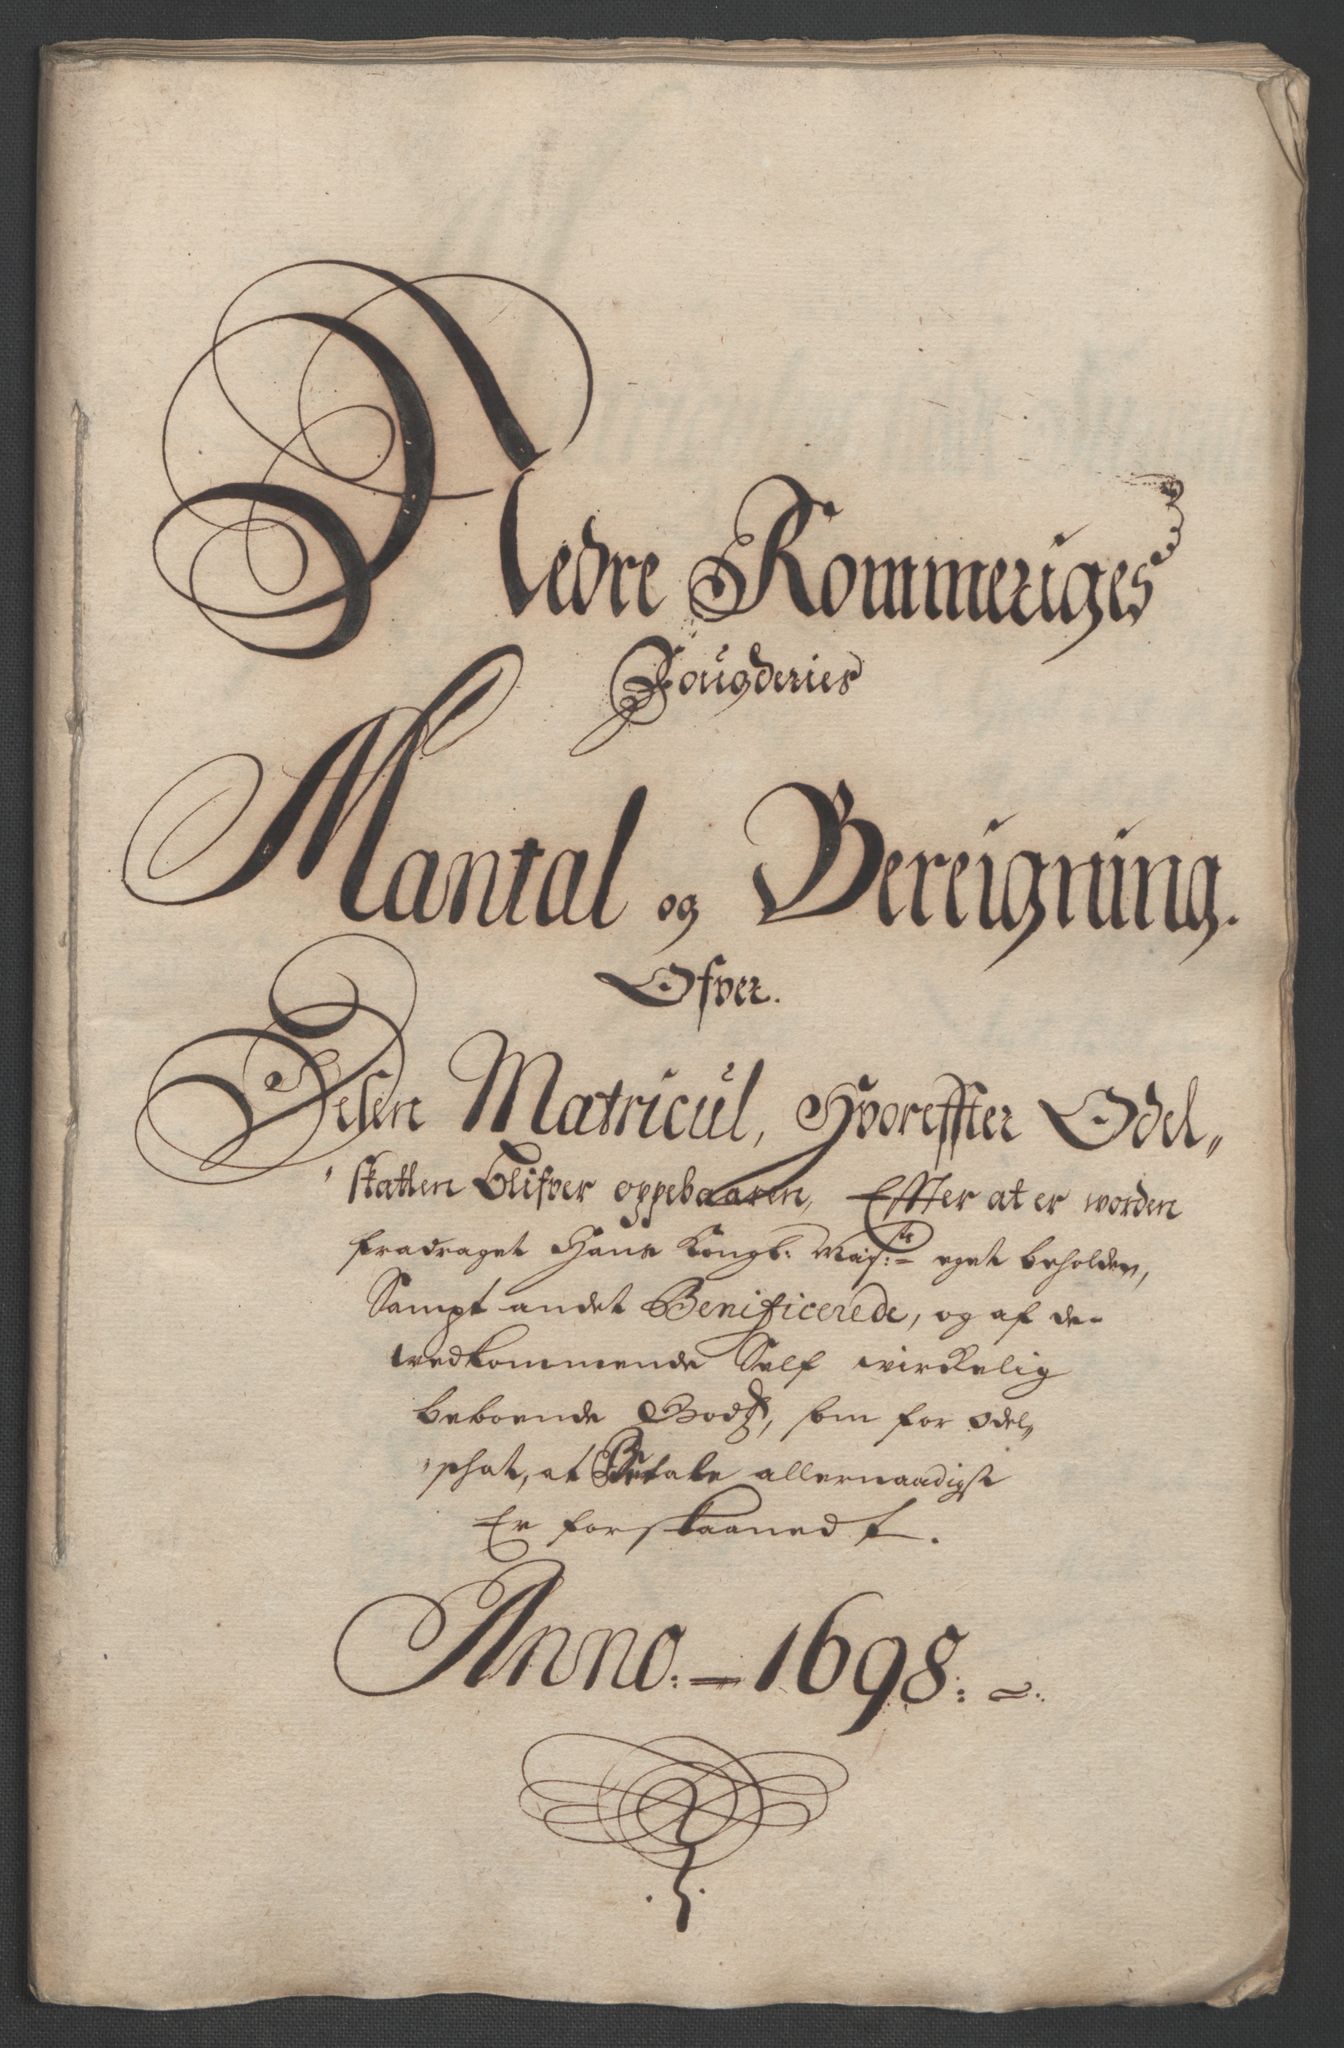 Nedre Rommeriges
Fougderies
Mantal og Bereigning.
Ofver.
Delen Matricul, Hvoreffter Odel„
„skatten blifver oppebaaren, Effter at er worden
fradraget Hans Kongl: Mayts:- eget beholden,
Sampt andet Benificerede, og af de-
wedkommende Self wirkelig
beboende Godtz, som for odel„
„schat, at Betale allernaadigst
Er forskaanedt.
Anno. - 1698: